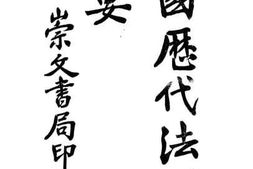 國歷代法
要
崇文書局印